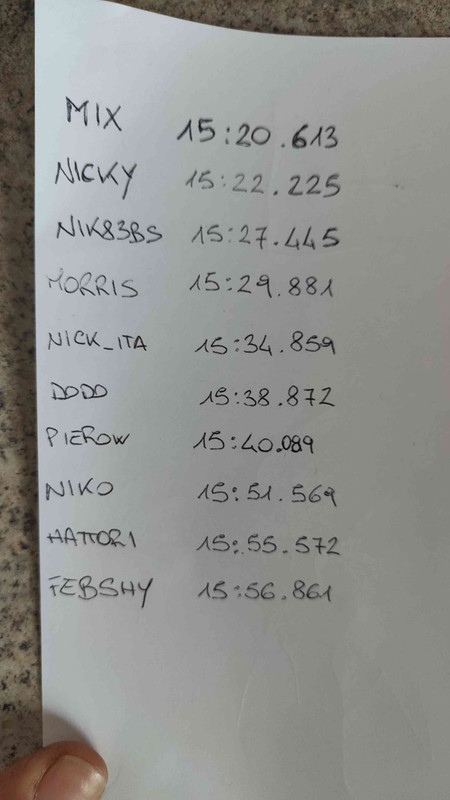 MIX 15:20.613
NICKY 15:22.225
NIK83BS 15:27.445
MORRIS 15:29.881
NICK_ITA 15:34.859
DODO 15:38.872
PIEROW 15:40.089
NIKO 15:51.569
HATTORI 15:55.572
FEBSHY 15:56.861